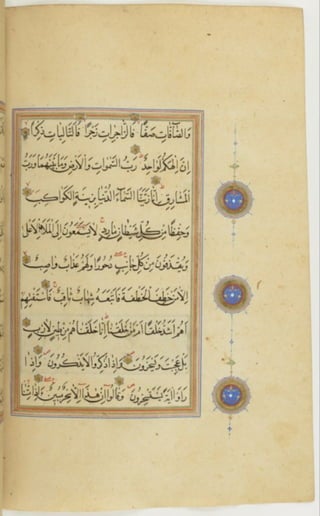 وَالصَّافَّاتِ صَفًّا فَالزَّاجِرَاتِ زَجْرًا فَالتَّالِيَاتِ ذِكْرًا
اِنَّ اِلٰهَكُمْ لَوَاحِدٌ رَبُّ السَّمٰوَاتِ وَالْاَرْضِ وَمَا بَيْنَهُمَا وَرَبُّ
الْمَشَارِقِ اِنَّا زَيَّنَّا السَّمَآءَ الدُّنْيَا بِزِينَةِ الْكَوَاكِبِ
وَحِفْظًا مِنْ كُلِّ شَيْطَانٍ مَارِدٍ لَا يَسَّمَّعُونَ اِلَى الْمَلَاِ الْاَعْلٰى
وَيُقْذَفُونَ مِنْ كُلِّ جَانِبٍ دُحُورًا وَلَهُمْ عَذَابٌ وَاصِبٌ
اِلَّا مَنْ خَطِفَ الْخَطْفَةَ فَاَتْبَعَهُ شِهَابٌ ثَاقِبٌ فَاسْتَفْتِهِمْ
اَهُمْ اَشَدُّ خَلْقًا اَمْ مَنْ خَلَقْنَا اِنَّا خَلَقْنَاهُمْ مِنْ طِينٍ لَازِبٍ
بَلْ عَجِبْتَ وَيَسْخَرُونَ وَاِذَا ذُكِّرُوا لَا يَذْكُرُونَ وَاِذَا
رَاَوْا اٰيَةً يَسْتَسْخِرُونَ وَقَالُوا اِنْ هٰذَا اِلَّا سِحْرٌ مُبِينٌ ءَاِذَا مِتْنَا